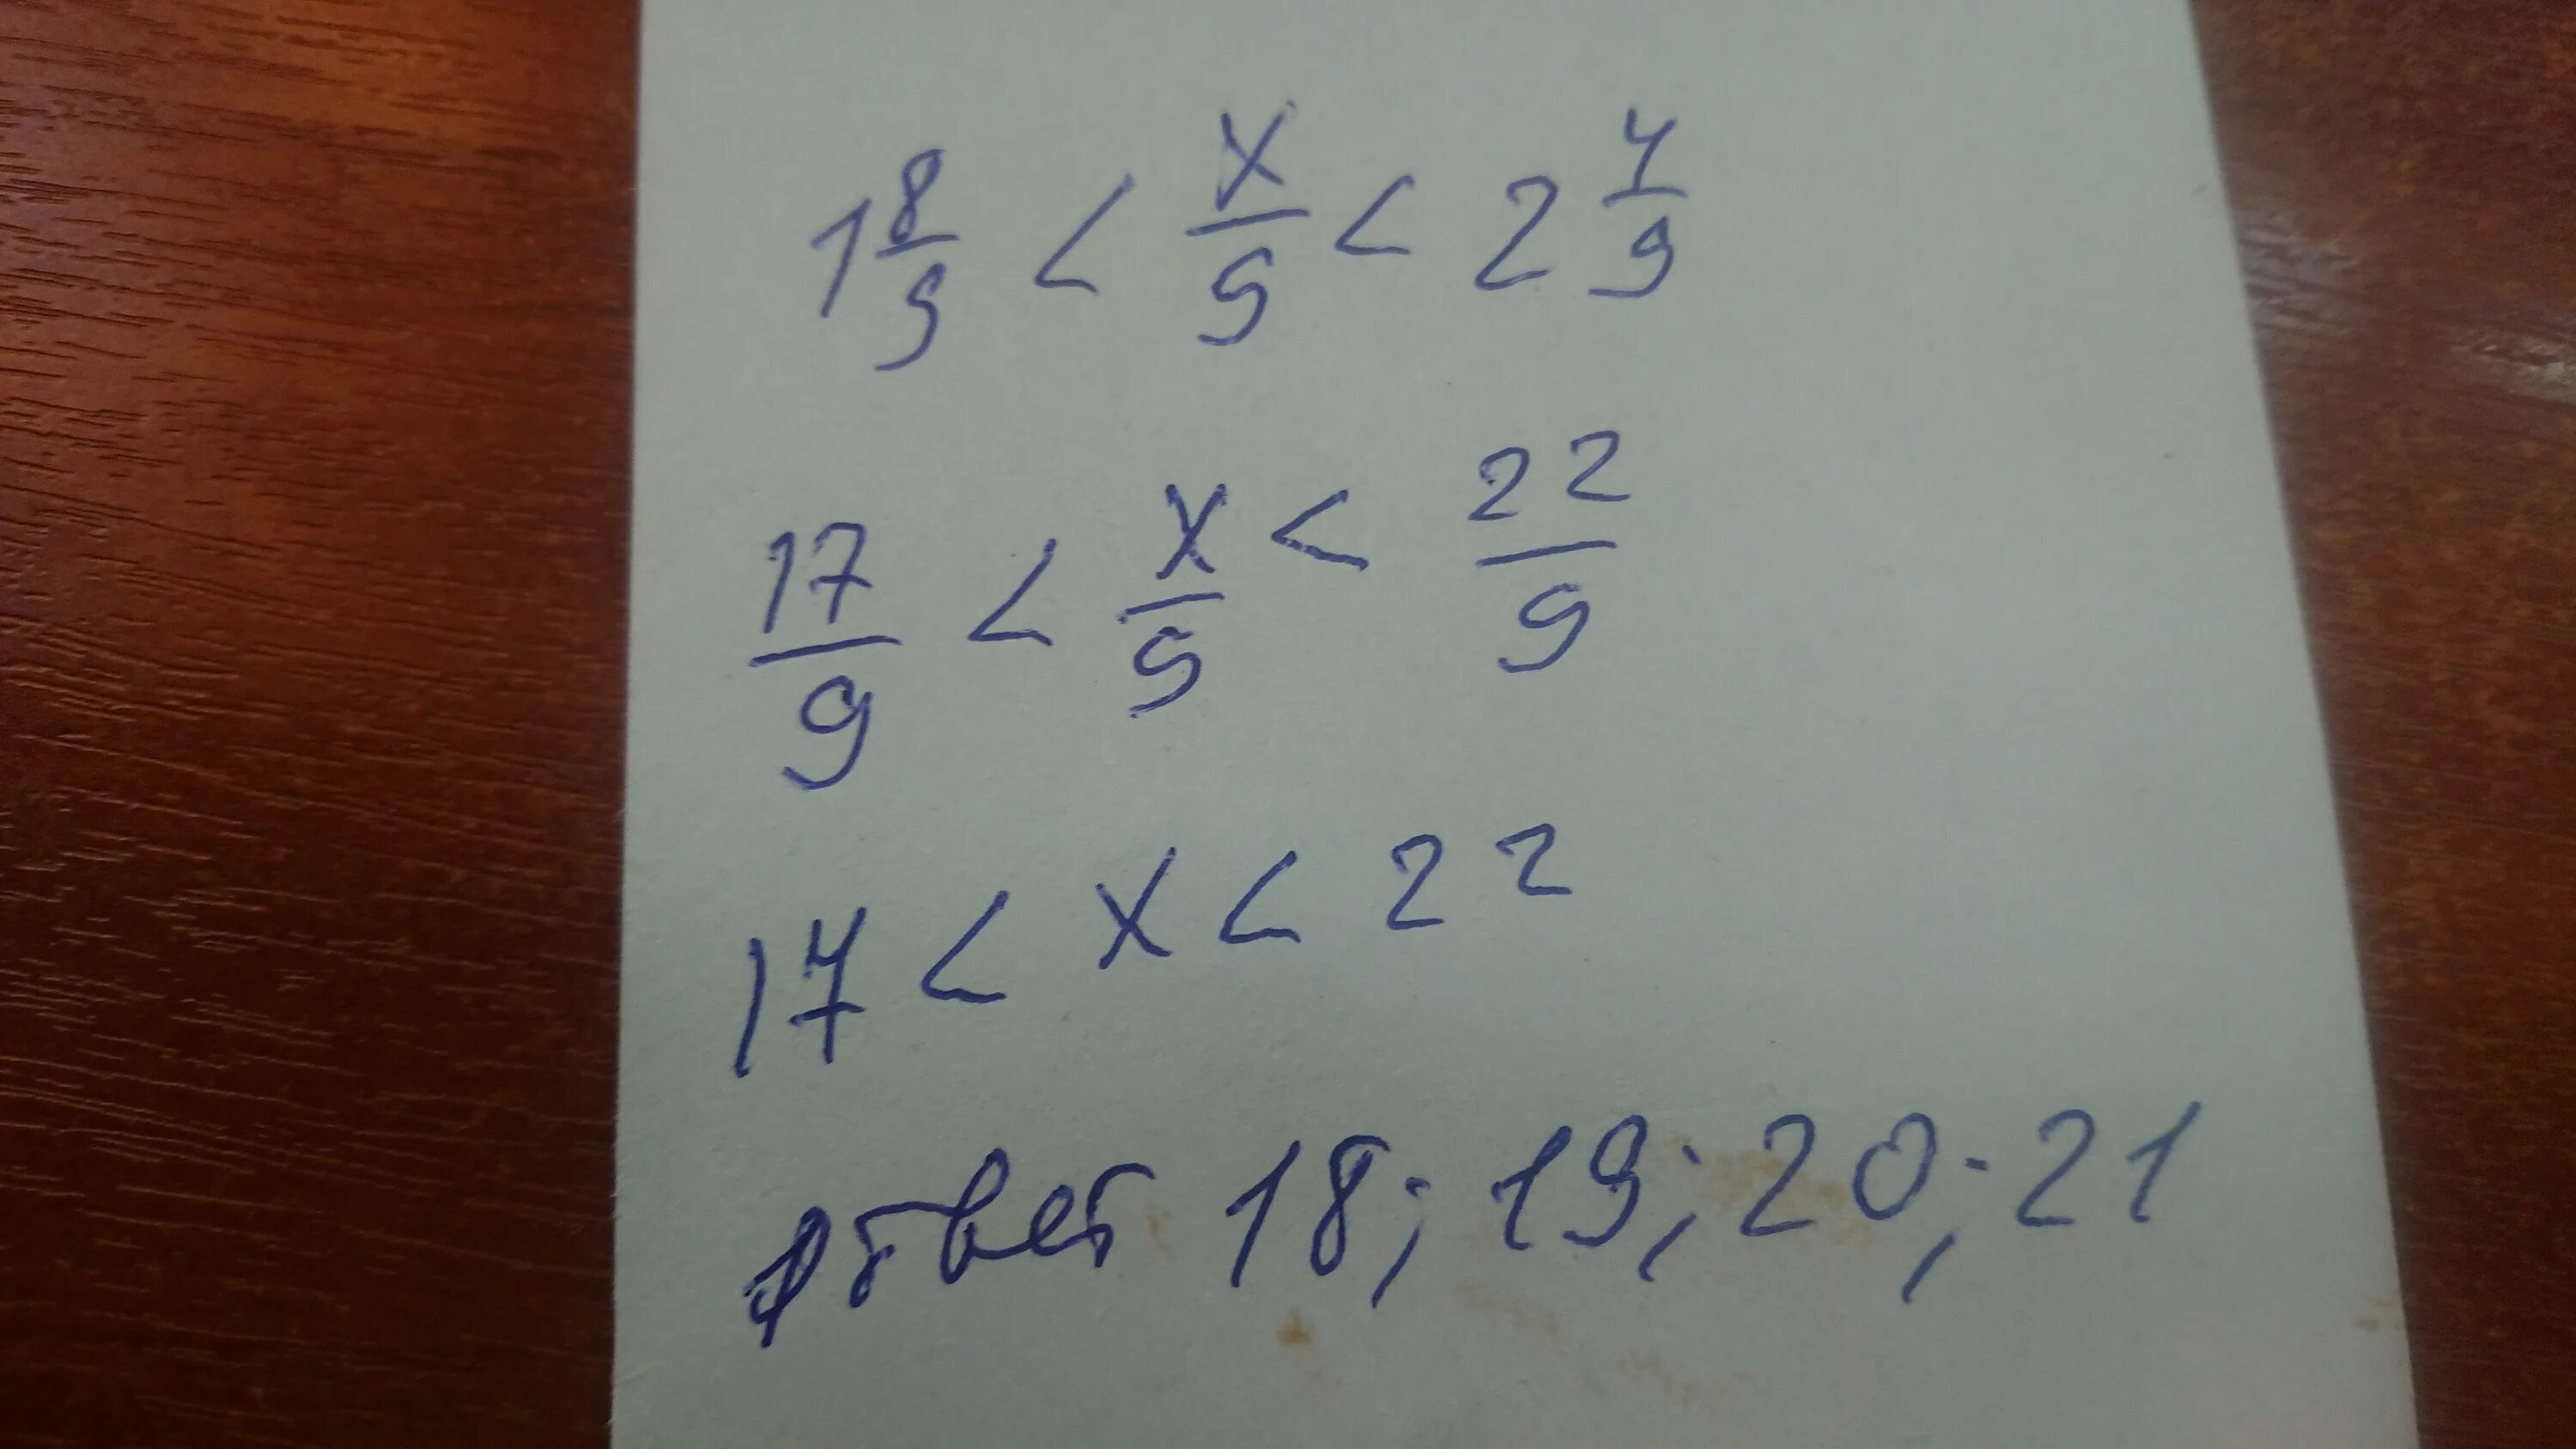 1 8/9 < x/9 < 2 4/9
17/9 < x/9 < 22/9
17 < x < 22
Ответ 18; 19; 20; 21